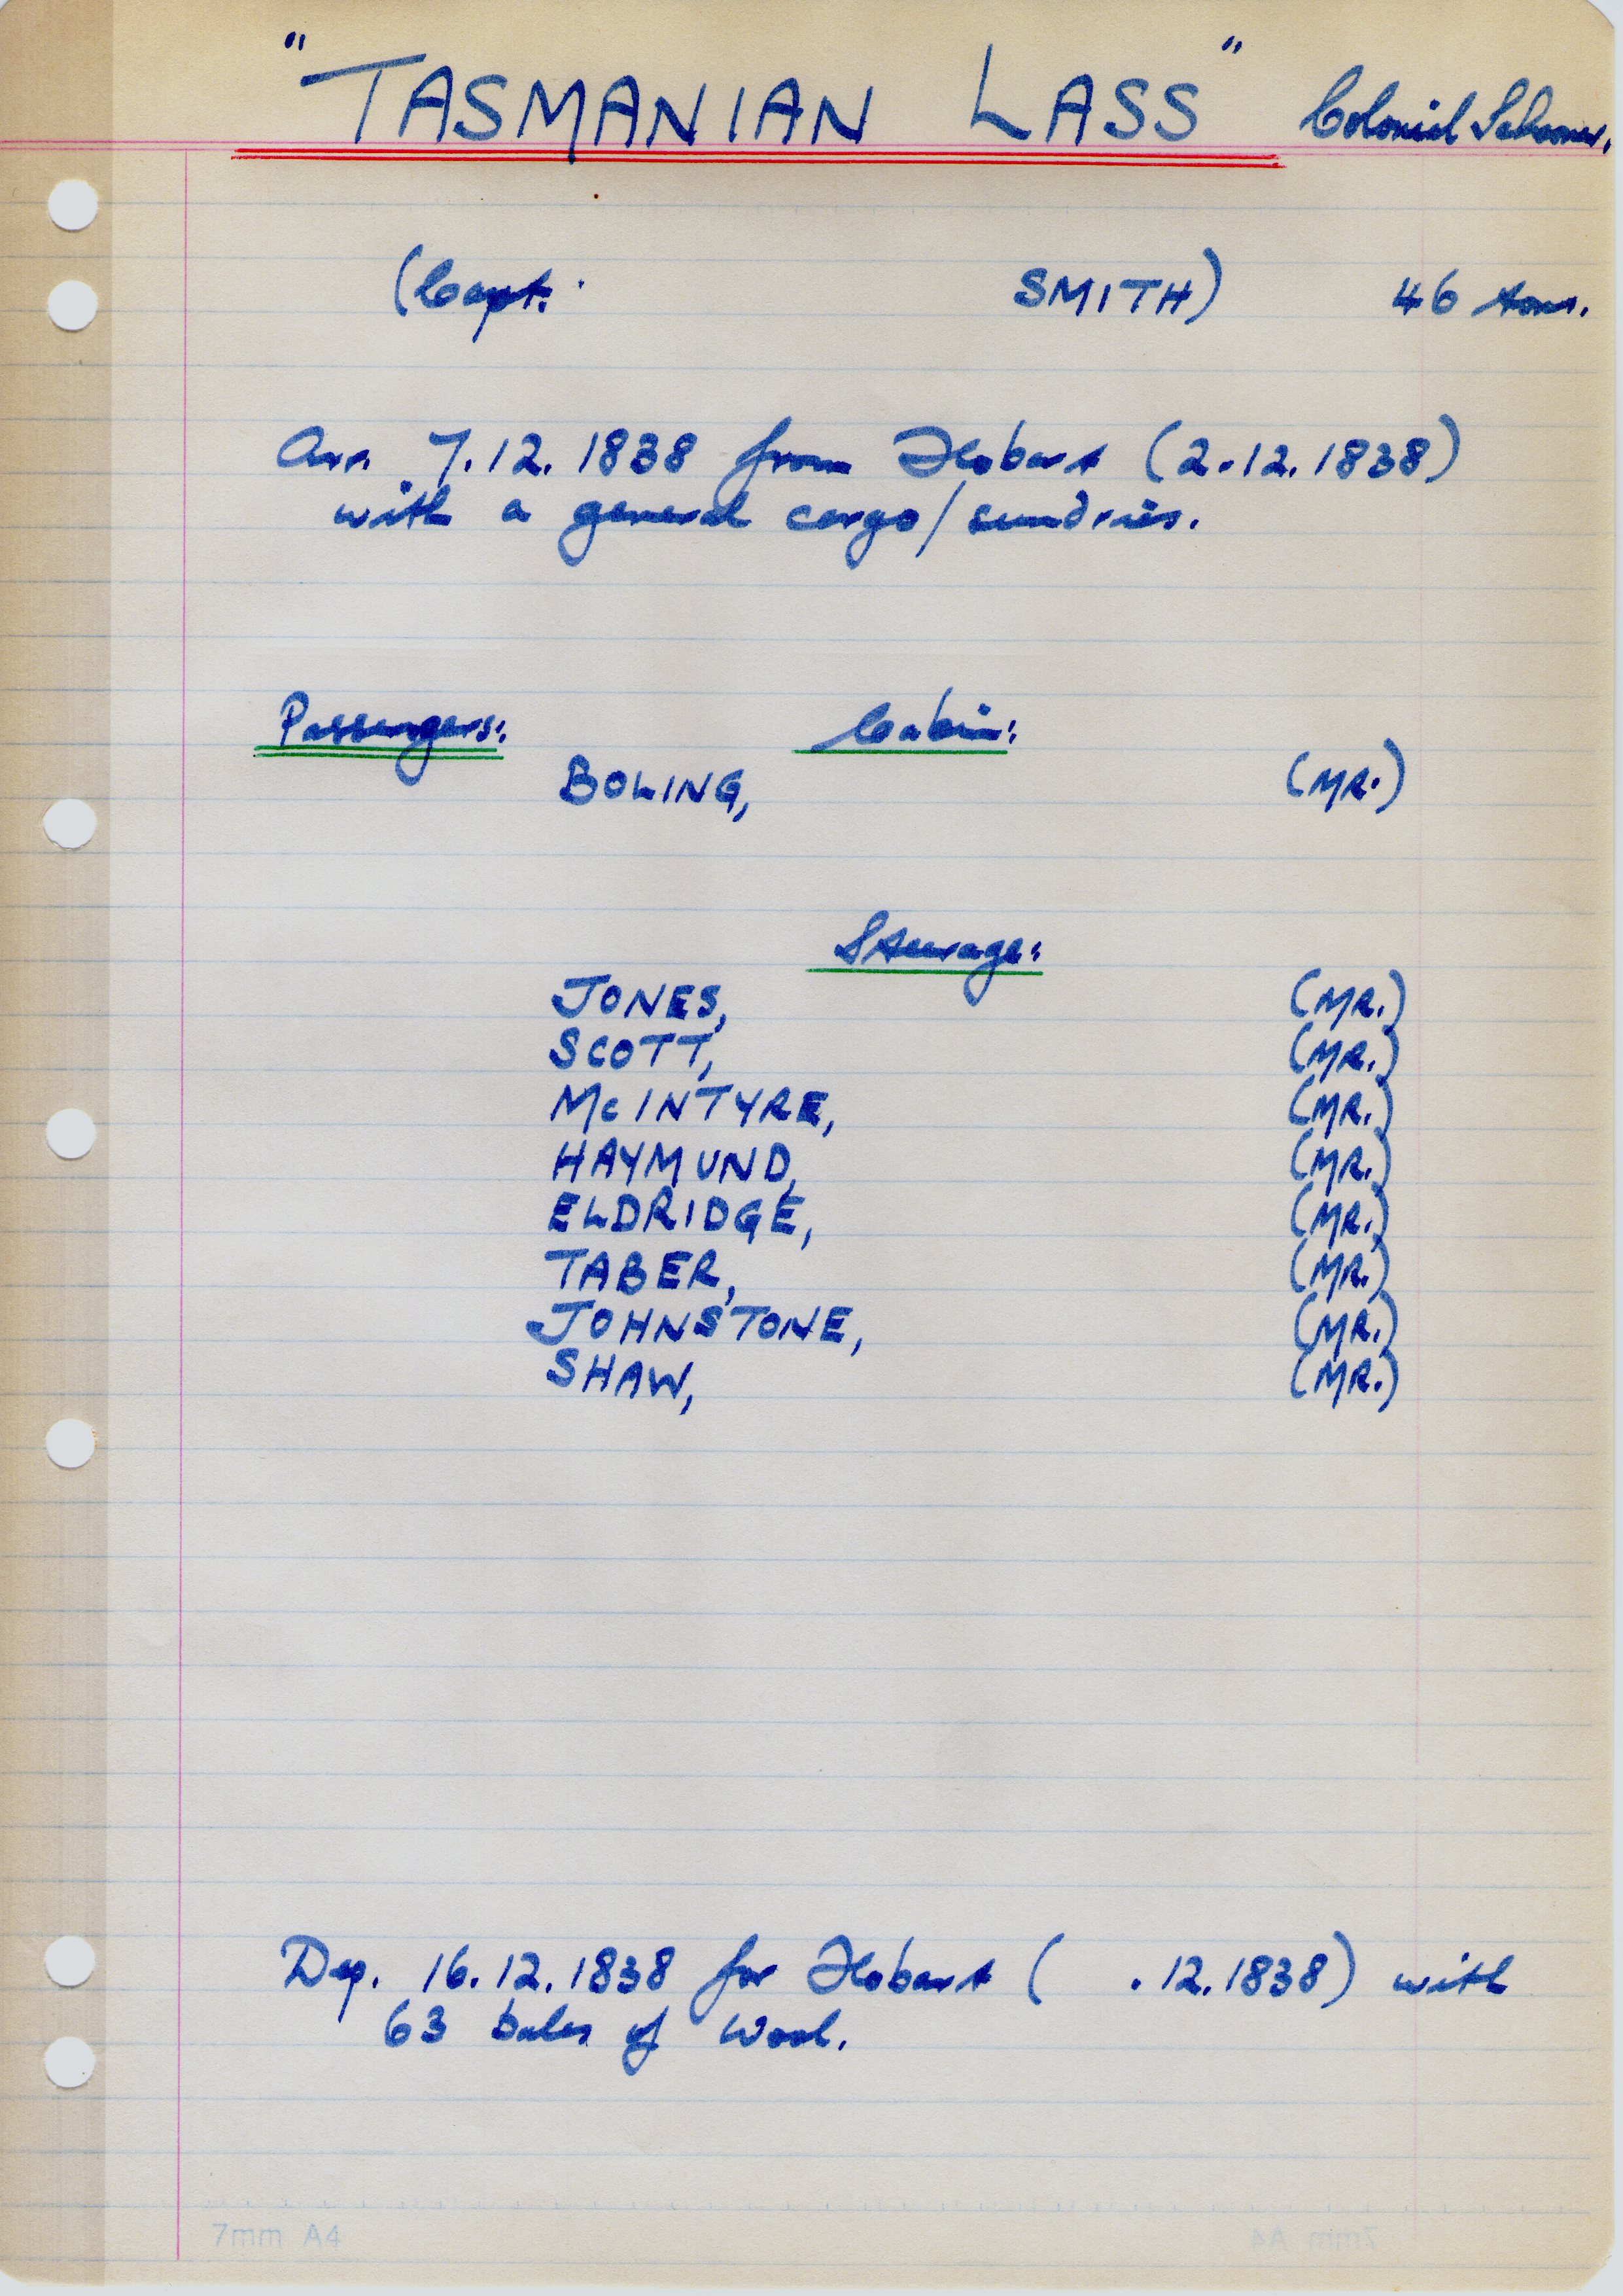 "TASMANIAN LASS" Colonial Schooner.
(Capt. SMITH) 46 tons.
Arr. 7.12.1838 from Hobart (2.12.1838)
with a general cargo/sundries.
Passengers: Cabin:
BOLING, (MR.)
Steerage:
JONES, (MR.)
SCOTT, (MR.)
McINTYRE, (MR.)
HAYMUND, (MR.)
ELDRIDGE, (MR.)
TABER, (MR.)
JOHNSTONE, (MR.)
SHAW, (MR.)
Dep. 16.12.1838 for Hobart ( .12.1838) with
63 bales of wool.
7mm A4